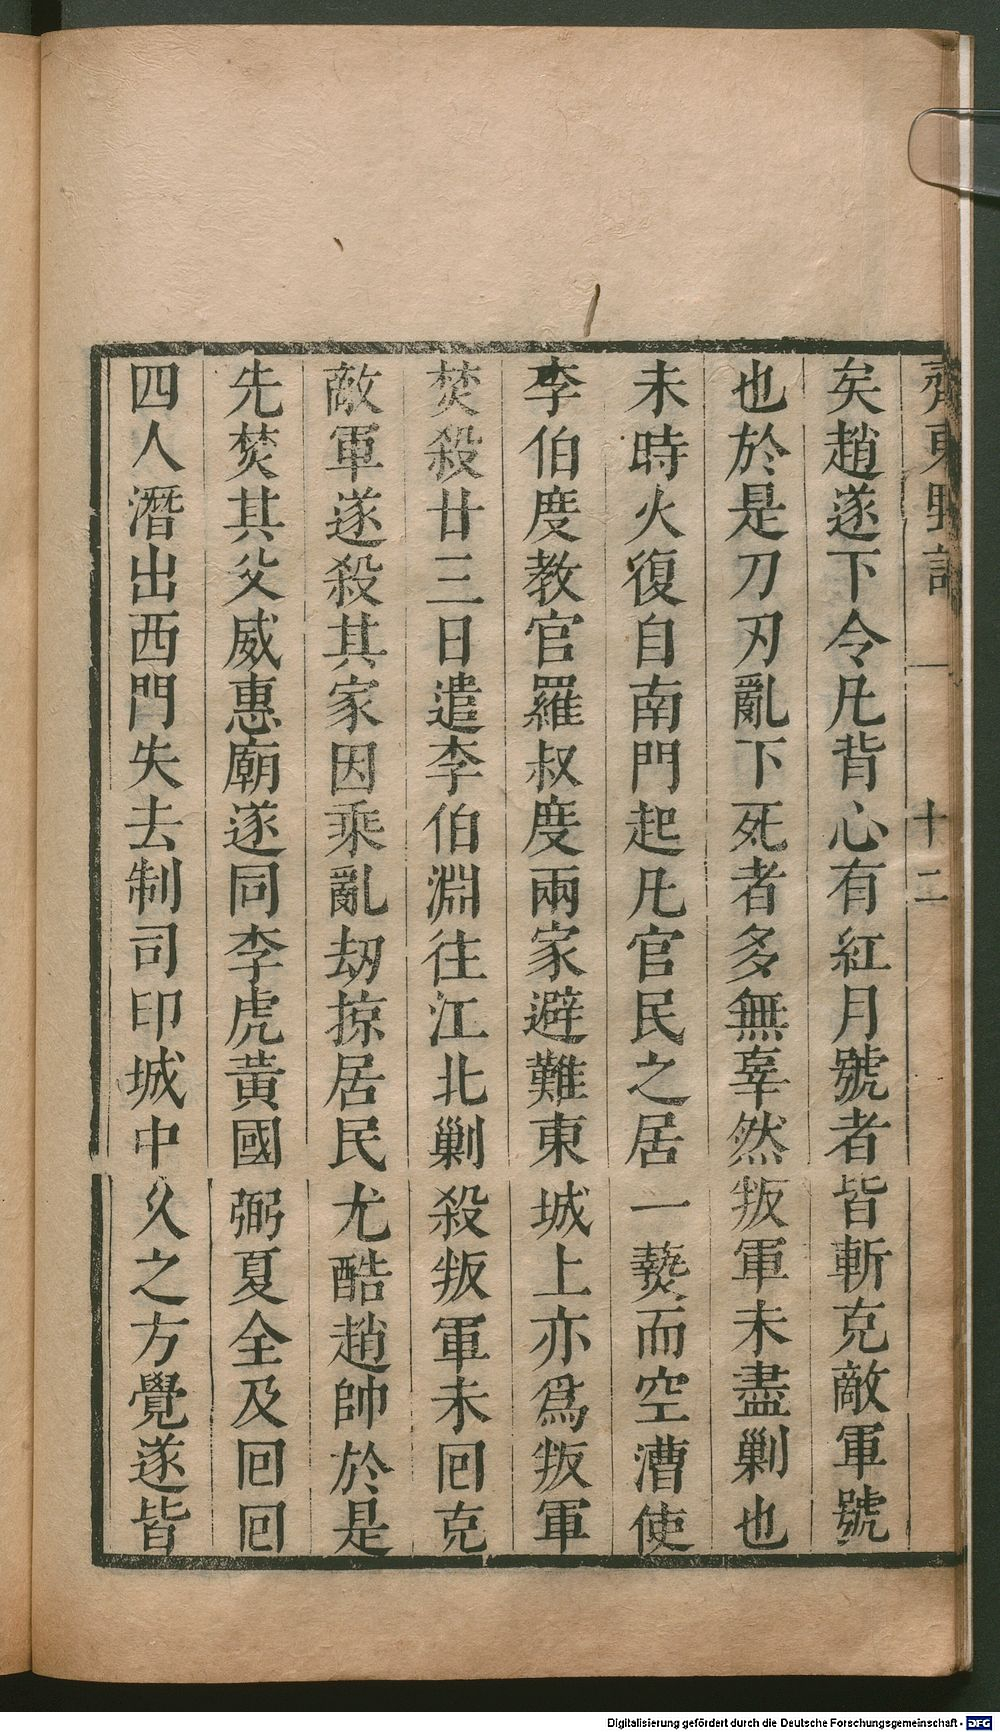 齊東野語 一 十二
矣趙遂下令凡背心有紅月號者皆斬克敵軍號
也於是刀刃亂下死者多無辜然叛軍未盡剿也
未時火復自南門起凡官民之居一爇而空漕使
李伯度教官羅叔度兩家避難東城上亦爲叛軍
焚殺廿三日遣李伯淵往江北剿殺叛軍未囘克
敵軍遂殺其家因乘亂刼掠居民尤酷趙帥於是
先焚其父威惠廟遂同李虎黃國弼夏全及囘囘
四人潛出西門失去制司印城中久之方覺遂皆
Digitalisierung gefördert durch die Deutsche Forschungsgemeinschaft - DFG